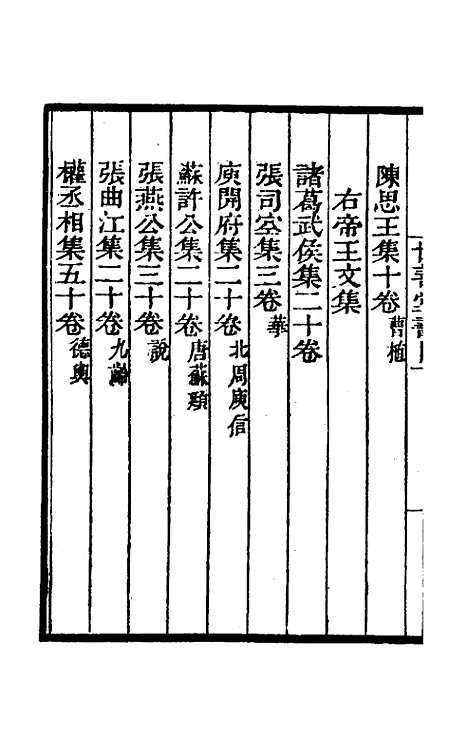 陳思王集十卷曹植
右帝王文集
諸葛武侯集二十卷
張司空集三卷華
庾開府集二十卷北周庾信
蘇許公集二十卷唐蘇頲
張燕公集三十卷說
張曲江集二十卷九齡
權丞相集五十卷德輿